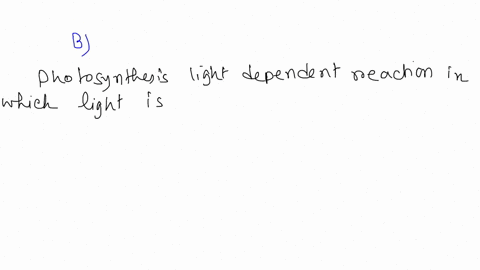 B)
Photosynthesis light dependent reaction in
which light is